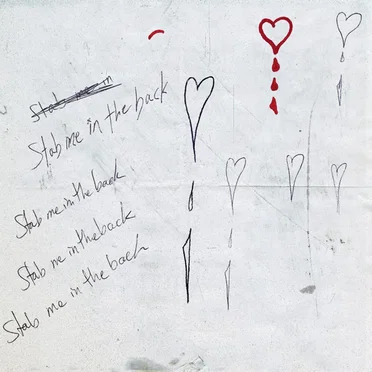 Stab me in
Stab me in the back
Stab me in the back
Stab me in the back
Stab me in the back